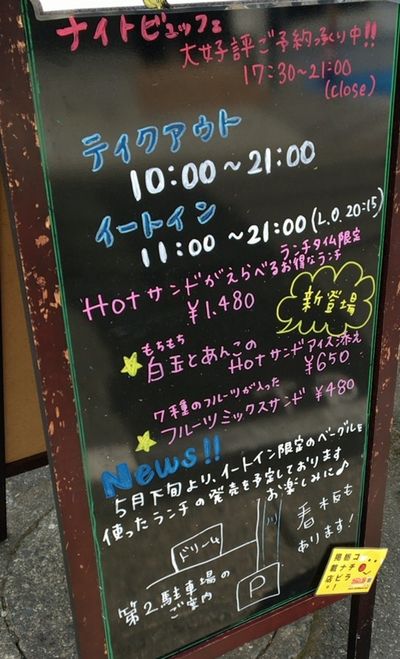 ナイトビュッフェ
大好評ご予約承り中!!
17:30～21:00
(close)
テイクアウト
10:00～21:00
イートイン
11:00～21:00(L.O.20:15)
ランチタイム限定
Hotサンドがえらべるお得なランチ
¥1,480
新登場
もちもち
白玉とあんこの
Hotサンドアイス添え
¥650
7種のフルーツが入った
フルーツミックスサンド ¥480
News!!
5月下旬より、イートイン限定のベーグルを
使ったランチの発売を予定しております
お楽しみに♪
ドリーム
川
看板も
あります!
第2駐車場の
ご案内
P